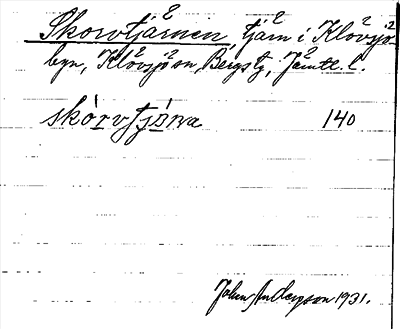 Skorvtjärnen tjärn i Klövsjö
byn, Klövsjö sn, Bergs tg, Jämtl. l.
skórvtjɷ̀ṇa 140
John Anderson 1931.